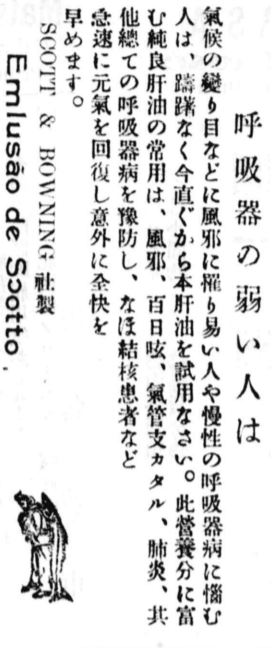 呼吸器の弱い人は
氣候の變り目などに風邪に罹り易い人や慢性の呼吸器病に惱む
人は、躊躇なく今直ぐから本肝油を試用なさい。此營養分に富
む純良肝油の常用は、風邪、百日咳、氣管支カタル、肺炎、其
他總ての呼吸器病を豫防し、なほ結核患者など
急速に元氣を回復し意外に全快を
早めます。
SCOTT & BOWNING 社製
Emlusão de Scotto.